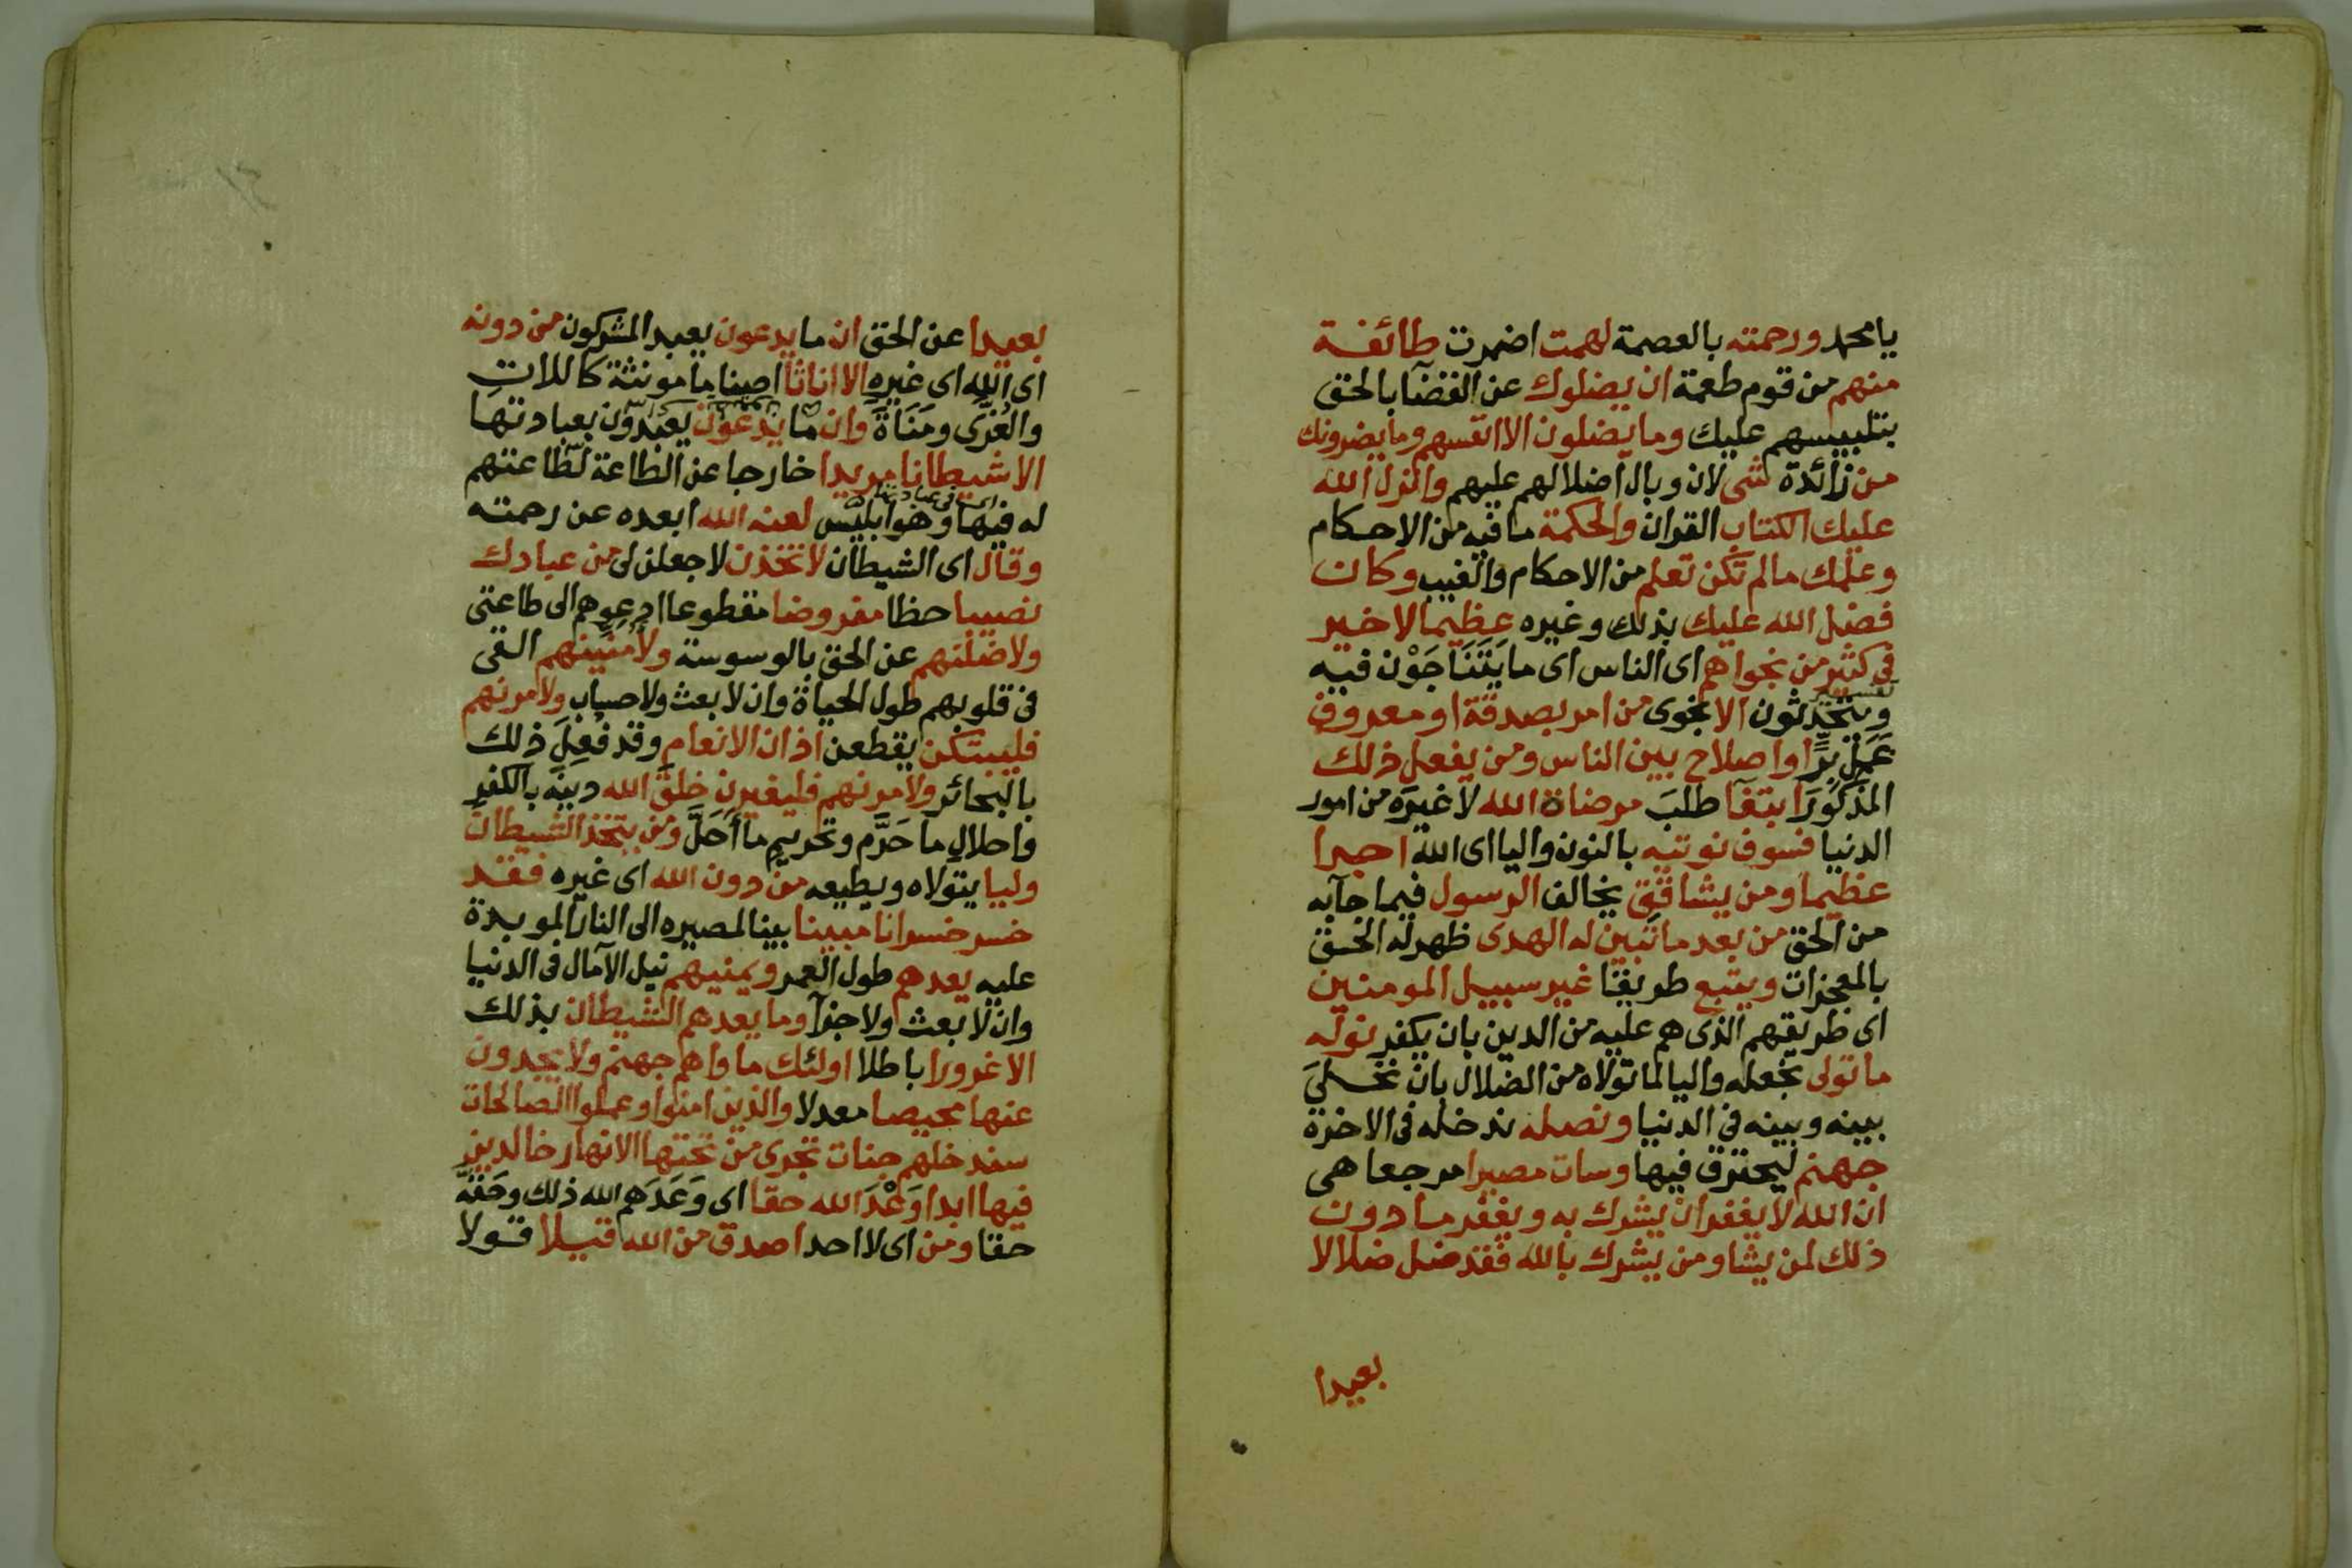 يا محمد ورحمته بالعصمة لهمت اضمرت طائفة
منهم من قوم طعمة ان يضلوك عن القضآ بالحق
بتلبيسهم عليك وما يضلون الا انفسهم وما يضرونك
من زائدة شى لان وبال اضلالهم عليهم وانزل الله
عليك الكتاب القران والحكمة ما فيه من الاحكام
وعلمك ما لم تكن تعلم من الاحكام والغيب وكان
فضل الله عليك بذلك وغيره عظيما لا خير
فى كثير من نجواهم اى الناس اى ما يَتَنَاجَوْن فيه
ويتحدثون الا نجوى من امر بصدقة او معروف
عَمَلِ بِرٍّ او اصلاح بين الناس ومن يفعل ذلك
المذكُورَ ابتغآ طلبَ مرضاة الله لا غيرَه من امور
الدنيا فسوف نوتيه بالنون واليا اى الله اجرا
عظيما ومن يشاقِق يخالف الرسول فيما جآبه
من الحق من بعد ما تبين له الهدى ظهر له الحق
بالمعجزات ويتبع طريقا غير سبيل المومنين
اى طريقهم الذى هم عليه من الدين بان يكفر نوله
ما تولى نجعله واليا لما تولاه من الضلال بان نخلىَ
بينه وبينه فى الدنيا ونصله ندخله فى الاخرة
جهنم ليحترق فيها وسات مصيرا مرجعا هى
ان الله لا يغفر ان يشرك به ويغفر ما دون
ذلك لمن يشا ومن يشرك بالله فقد ضل ضلالا
بعيدا
بعيدا عن الحق ان ما يدعون يعبد المشركون من دونه
اى الله اى غيره الا اناثا اصناما مونثة كاللاتِ
والعُزَّى ومَنَاةَ وان ما يدعون يعبدون بعبادتها
الا شيطانا مريدا خارجا عن الطاعة لطاعتهم
له فيها وهو ابليس لعنه الله ابعده عن رحمته
وقال اى الشيطان لاتخذن لاجعلن لى من عبادك
نصيبا حظا مفروضا مقطوعا ادعوهم الى طاعتى
ولاضلنهم عن الحق بالوسوسة ولأُمنينهم القى
فى قلوبهم طول الحياة وان لا بعث ولا حساب ولامرنهم
فليبتكن يقطعن اذان الانعام وقد فُعِلَ ذلك
بالبحائر ولامرنهم فليغيرن خلق الله دينَه بالكفر
واحلالِ ما حَرَّم وتحريمِ ما أَحَلَّ ومن يتخذ الشيطان
وليا يتولاه ويطيعه من دون الله اى غيره فقد
خسر خسرانا مبينا بينا لمصيره الى النار الموبدة
عليه يعدهم طول العمر ويمنيهم نيل الآمال فى الدنيا
وان لا بعث ولا جزآ وما يعدهم الشيطان بذلك
الا غرورا باطلا اولئك ماواهم جهنم ولا يجدون
عنها محيصا معدلا والذين امنوا وعملوا الصالحات
سندخلهم جنات تجرى من تحتها الانهار خالدين
فيها ابدا وَعْدَ الله حقا اى وَعَدَهم الله ذلك وحَقَّه
حقا ومن اى لا احد اصدق من الله قيلا قولا